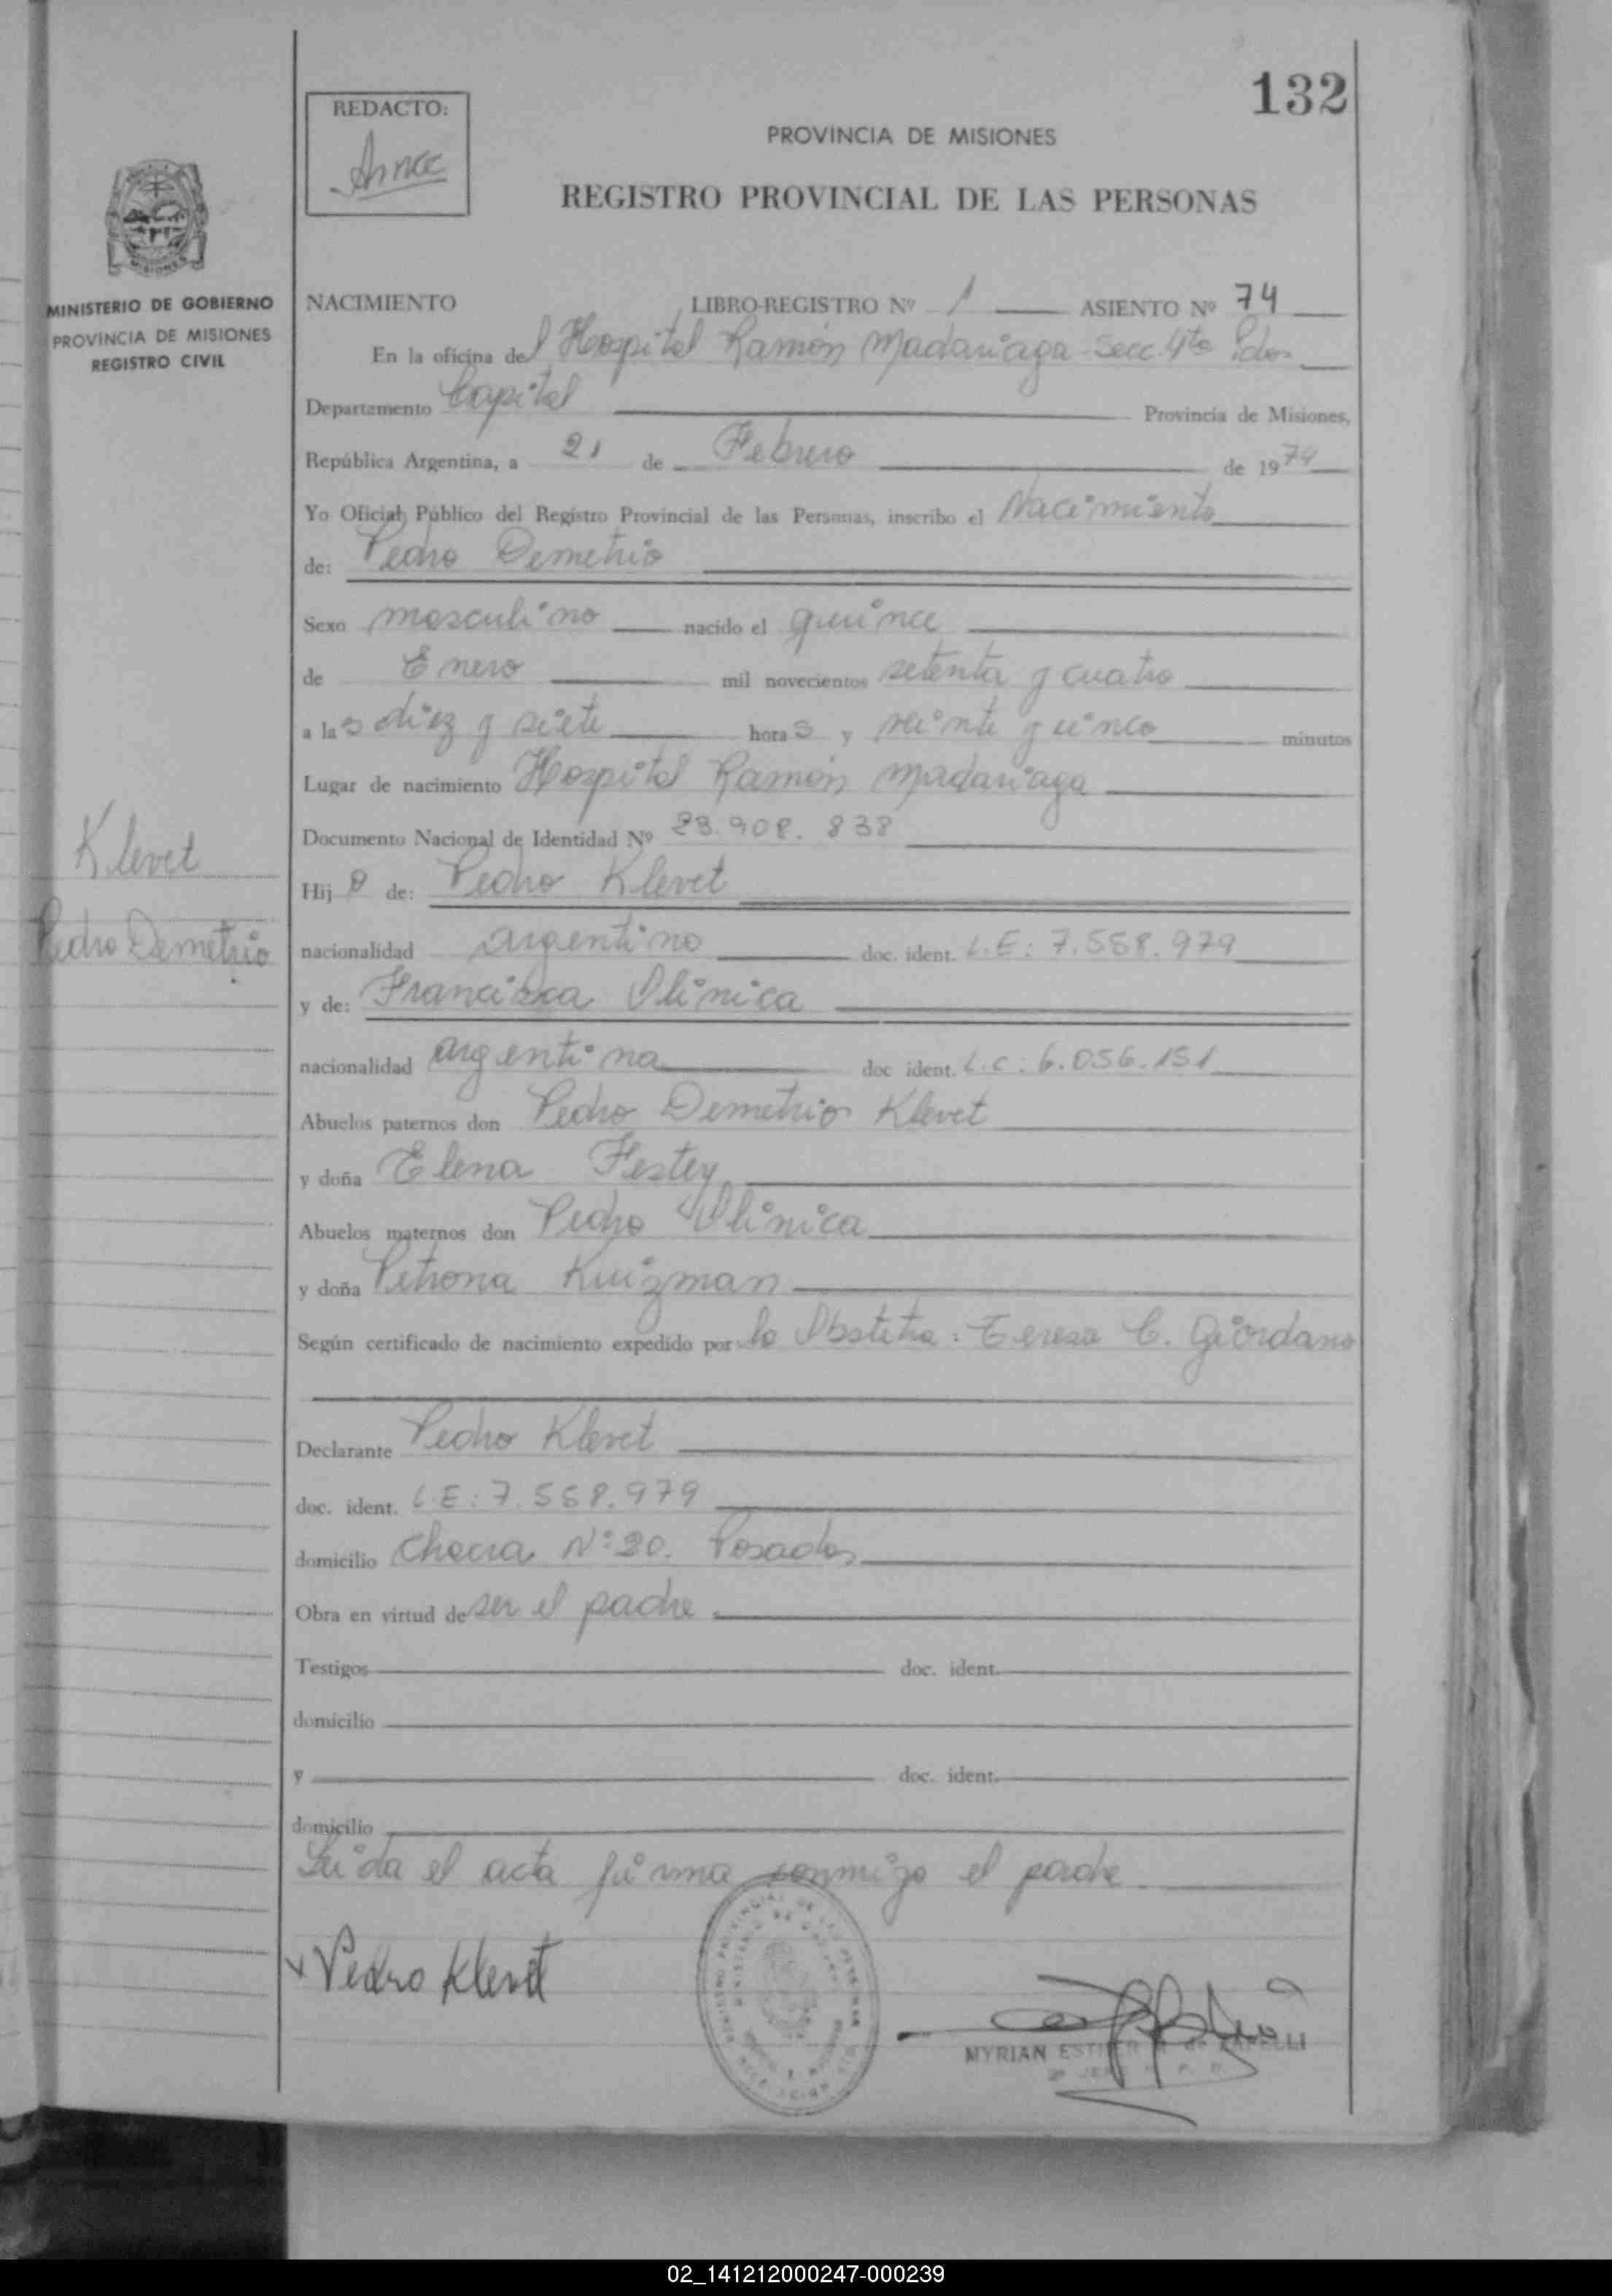 132
REDACTO:
PROVINCIA DE MISIONES
REGISTRO PROVINCIAL DE LAS PERSONAS
MINISTERIO DE GOBIERNO
PROVINCIA DE MISIONES
REGISTRO CIVIL
NACIMIENTO LIBRO-REGISTRO Nº 1 ASIENTO Nº 74
En la oficina del Hospital Ramón Madariaga - Secc. 4ta Pdas.
Departamento Capital Provincia de Misiones,
República Argentina, a 21 de Febrero de 1974
Yo Oficial Público del Registro Provincial de las Personas, inscribo el Nacimiento
de: Pedro Demetrio
Sexo masculino nacido el quince
de Enero mil novecientos setenta y cuatro
a las diez y siete horas y veinte y cinco minutos
Lugar de nacimiento Hospital Ramón Madariaga
Documento Nacional de Identidad Nº 23.908.838
Klevet
Pedro Demetrio
Hijo de: Pedro Klevet
nacionalidad argentino doc. ident. L.E: 7.558.979
y de: Francisca Olinica
nacionalidad argentina doc ident. L.C: 6.056.151
Abuelos paternos don Pedro Demetrio Klevet
y doña Elena Festey
Abuelos maternos don Pedro Olinica
y doña Petrona Kuizman
Según certificado de nacimiento expedido por la Obstetra: Teresa C. Giordano
Declarante Pedro Klevet
doc. ident. L.E: 7.558.979
domicilio Chacra Nº 20. Posadas
Obra en virtud de ser el padre.
Testigos doc. ident.
domicilio
y doc. ident.
domicilio
Leida el acta firma conmigo el padre.
x Pedro Klevet
MYRIAN ESTHER
02_141212000247-000239